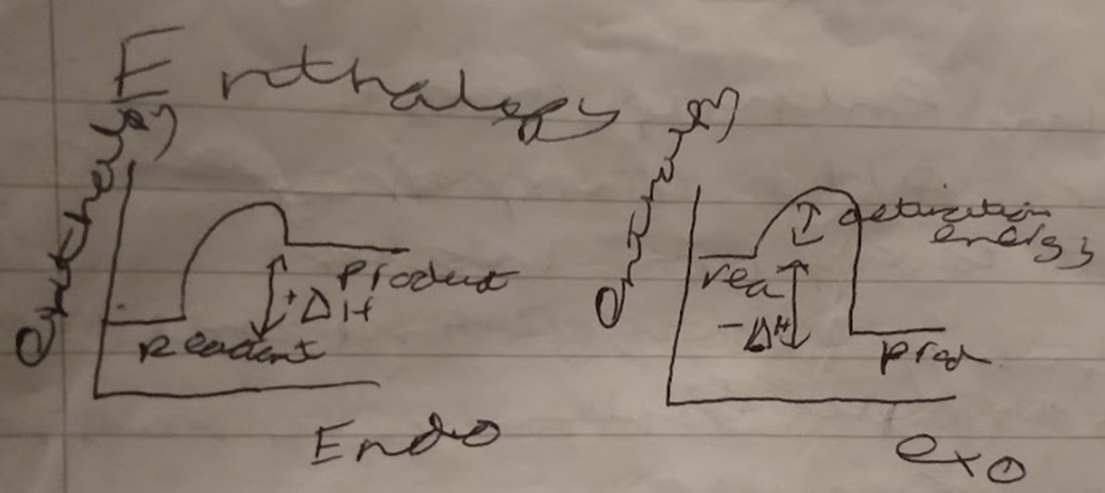 Enthalepy
enthelpy
Product
+ΔH
Reactent
Endo
activation
energy
rea
-ΔH
prod
exo